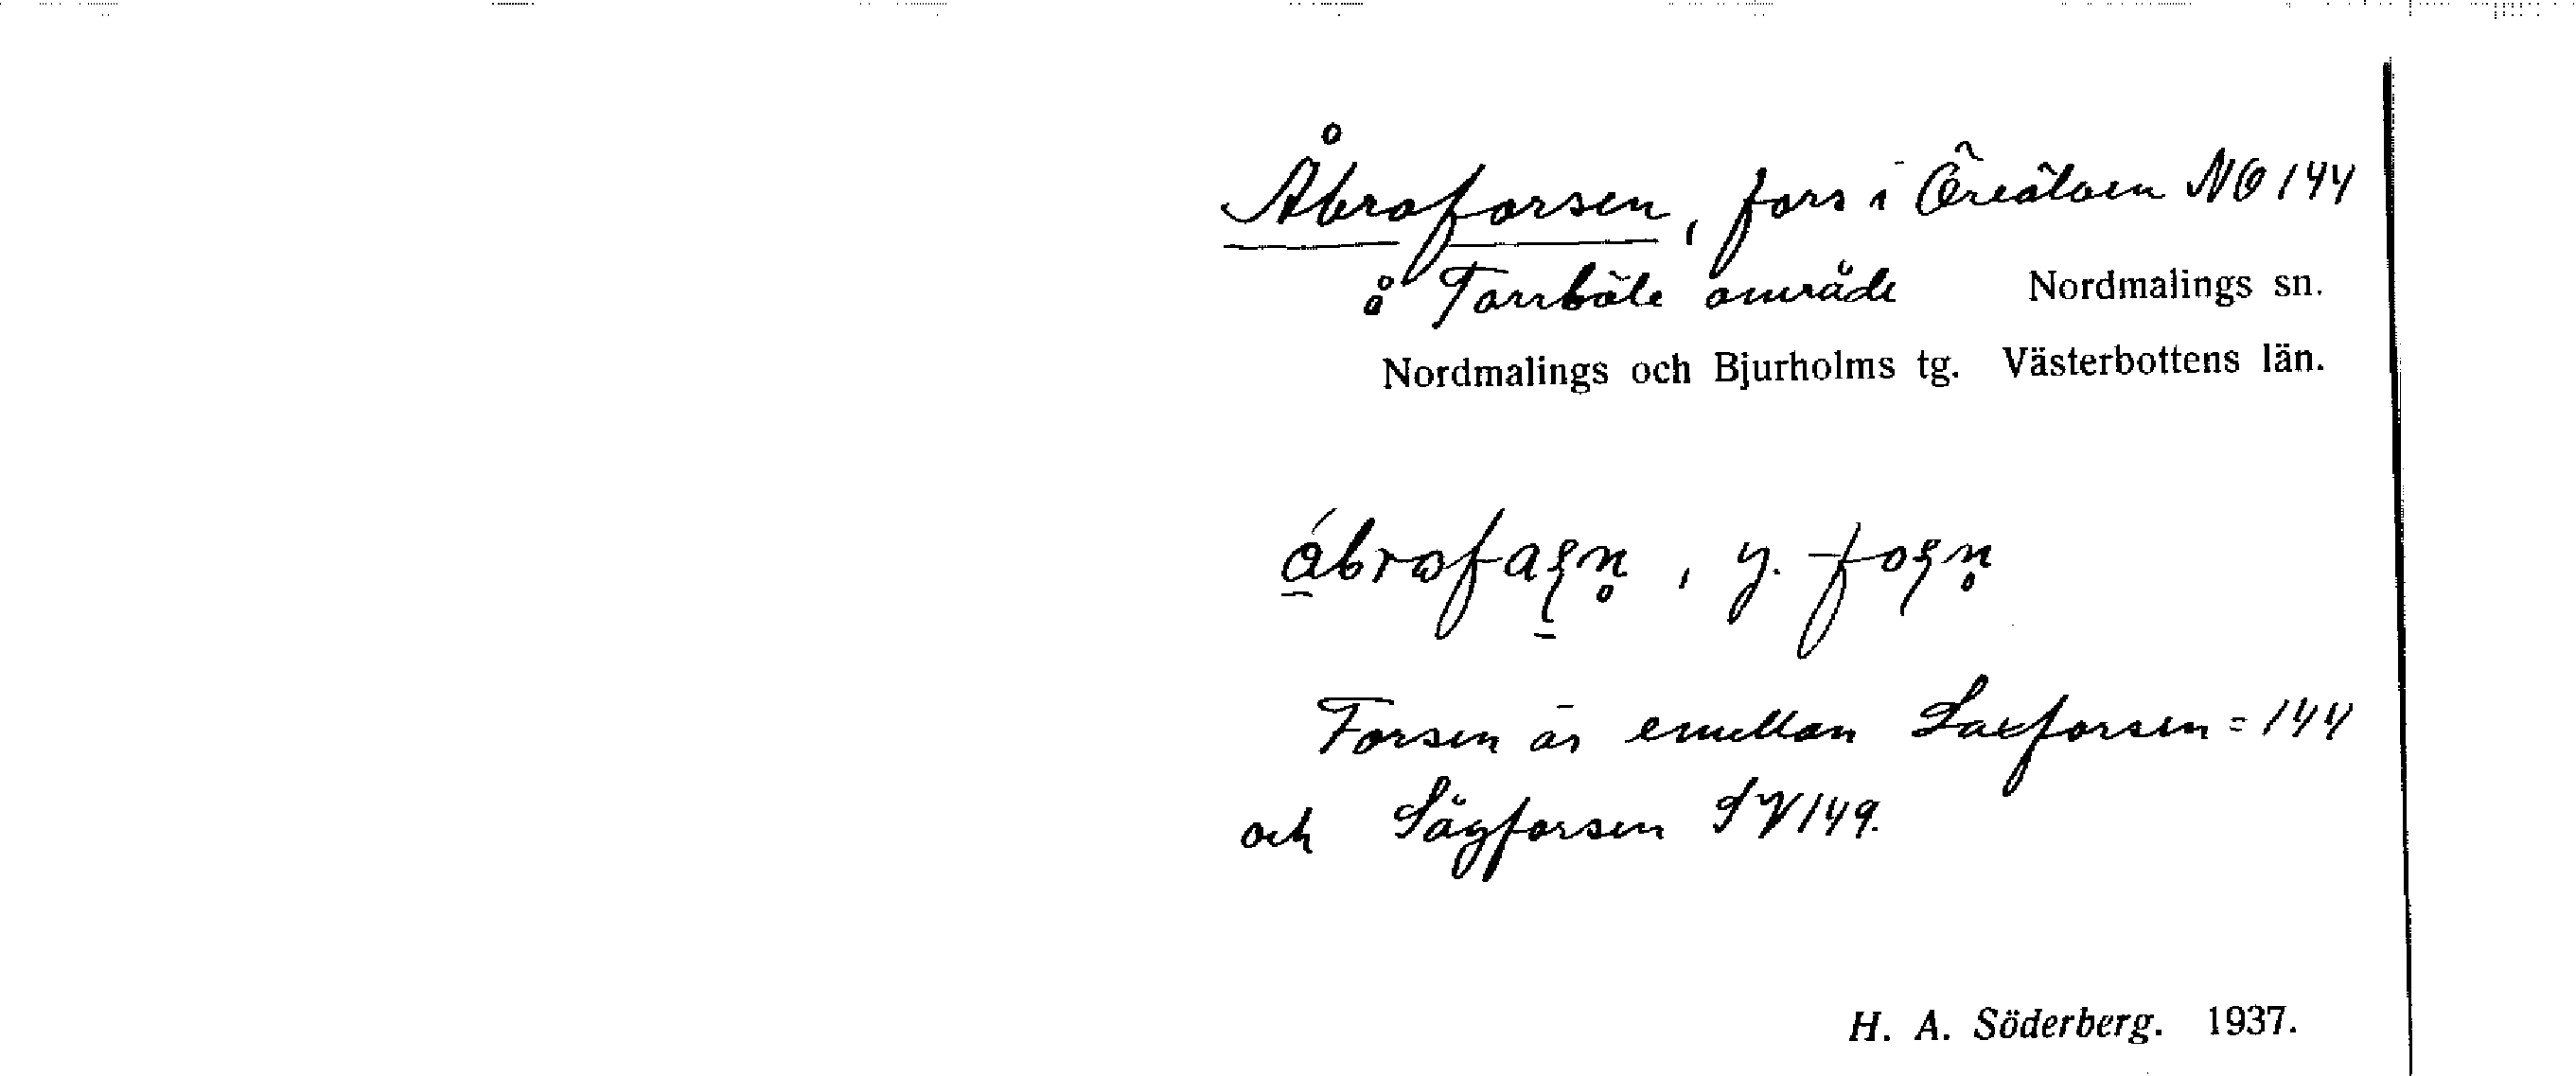 Åbroforsen, fors i Öreälven NO 144
å Torrböle område Nordmalings sn.
Nordmalings och Bjurholms tg. Västerbottens län.
Forsen är emellan Laxforsen = 144
och Sågforsen SV 149.
H. A. Söderberg. 1937.